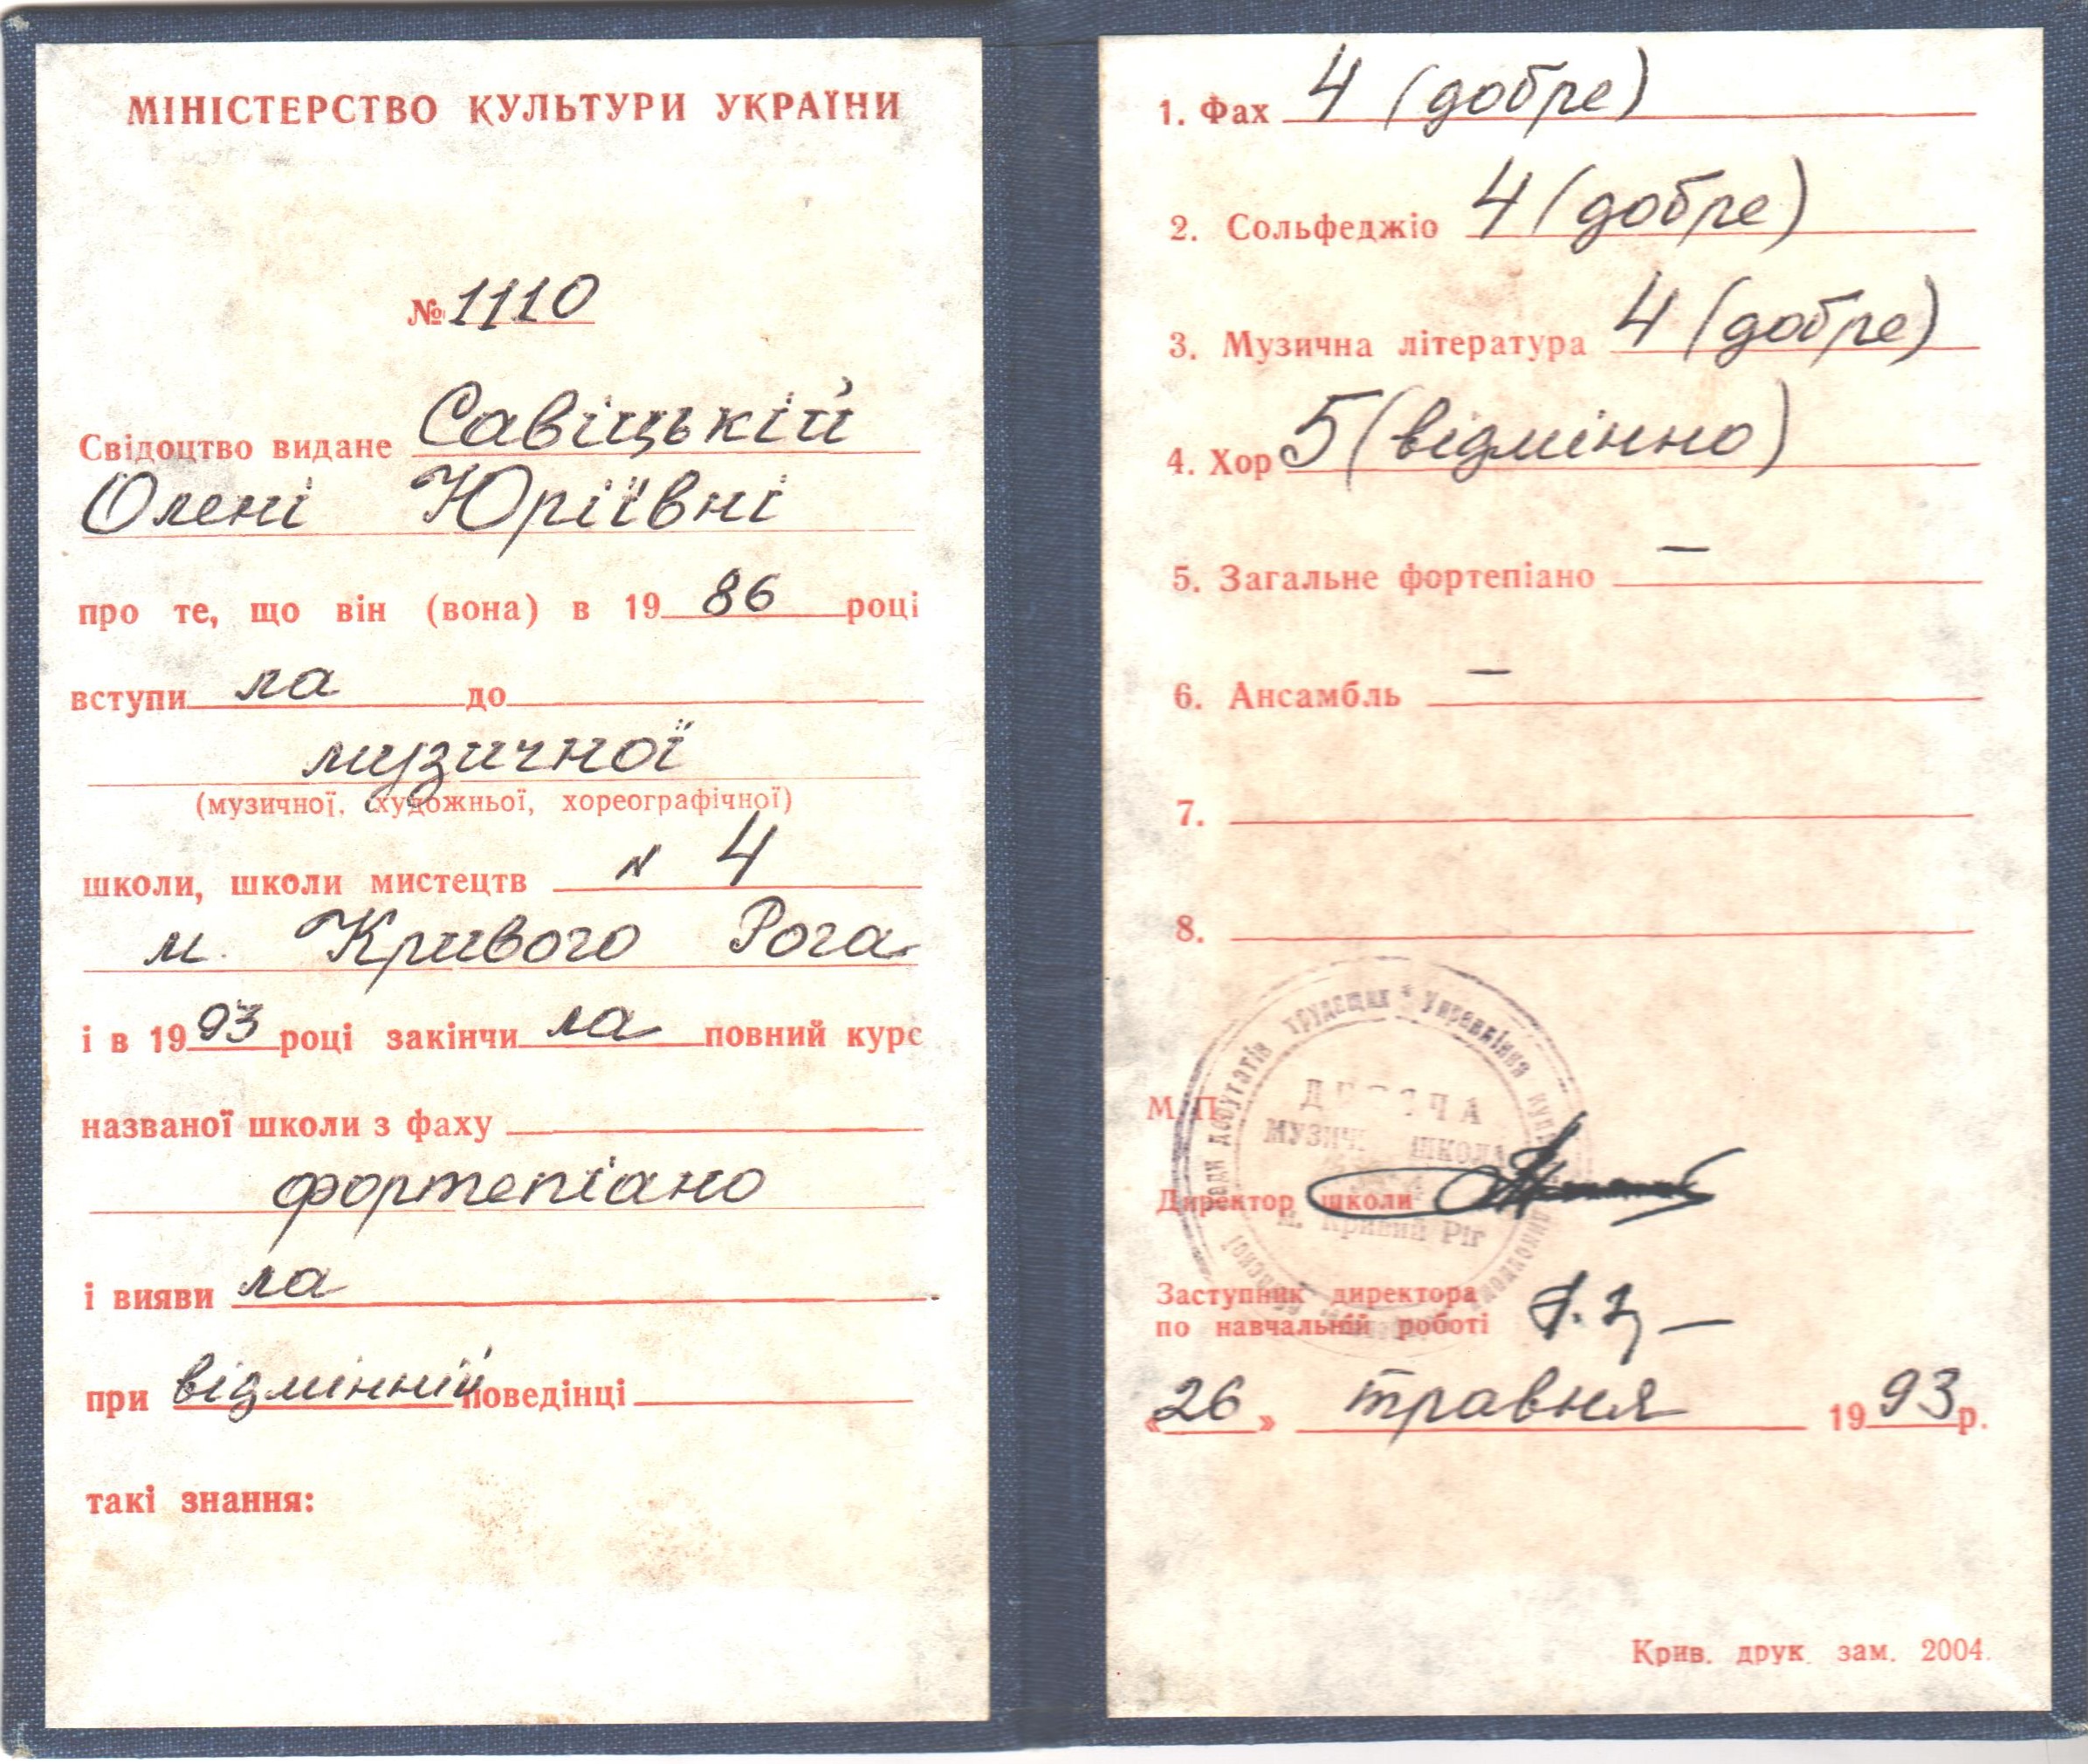 МІНІСТЕРСТВО КУЛЬТУРИ УКРАЇНИ
№ 1110
Свідоцтво видане Савіцькій
Олені Юріївні
про те, що він (вона) в 19 86 році
вступи ла до
музичної
(музичної, художньої, хореографічної)
школи, школи мистецтв N 4
м. Кривого Рога
і в 19 93 році закінчи ла повний курс
названої школи з фаху
фортепіано
і вияви ла
при відмінній поведінці
такі знання:
1. Фах 4 (добре)
2. Сольфеджіо 4 (добре)
3. Музична література 4 (добре)
4. Хор 5 (відмінно)
5. Загальне фортепіано —
6. Ансамбль —
7.
8.
депутатів трудящих * Управління
МУЗИЧ ШКОЛА
м. Кривий Ріг
М. П.
Директор школи
Заступник директора
по навчальній роботі
«26» травня 19 93 р.
Крив. друк. зам. 2004.